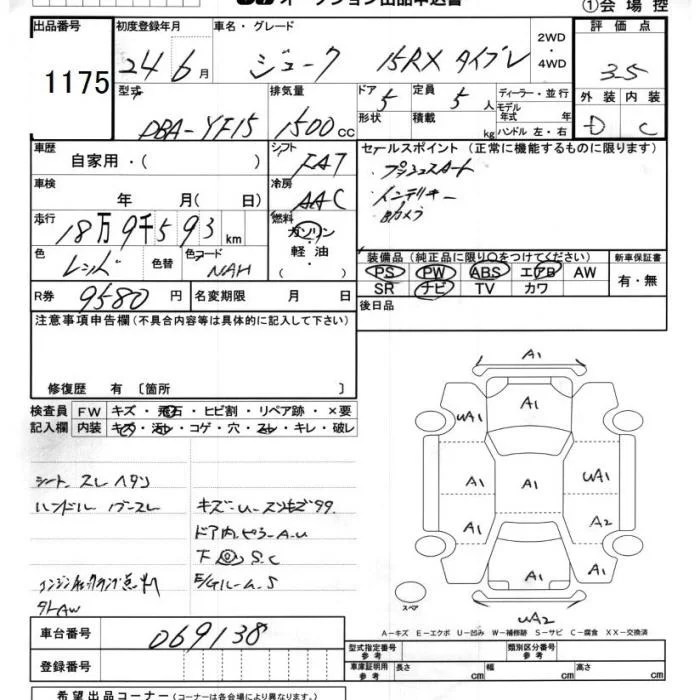 オークション出品申込書
①会場控
出品番号
1175
初度登録年月
24年6月
車名・グレード
ジューク 15RX タイプV
2WD
・
4WD
評価点
3.5
型式
DBA-YF15
排気量
1500cc
ドア
5
定員
5人
形状
積載
kg
ディーラー・並行
モデル年式 年
ハンドル 左・右
外装
D
内装
C
車歴
自家用・( )
シフト
FAT
セールスポイント (正常に機能するものに限ります)
・プッシュスタート
・インテリキー
・Bカメラ
車検
年 月( 日)
冷房
AAC
走行
18万9千593km
燃料
ガソリン
・
軽油
・
( )
色
レッド
色替
色コード
NAH
装備品 (純正品に限り○をつけてください)
PS PW ABS エアB AW
SR ナビ TV カワ
新車保証書
有・無
R券
9580円
名変期限 月 日
後日品
注意事項申告欄 (不具合内容等は具体的に記入して下さい)
修復歴 有 〔箇所 〕
検査員記入欄
FW キズ・飛石・ヒビ割・リペア跡・×要
内装 キズ・汚レ・コゲ・穴・スレ・キレ・破レ
シート スレ ヘタン
ハンドル
キズ・U・
ドア内ピラーA・U
下 S.C
E/Gルーム.S
エンジンチェックランプ点
A1
A1
UA1
A1
A1
UA1
A1
A2
A1
A1
UA2
スペア
A-キズ E-エクボ U-凹み W-補修跡 S-サビ C-腐食 XX-交換済
車台番号
069138
登録番号
型式指定番号
参考
類別区分番号
参考
車庫証明用
参考
長さ cm
幅 cm
高さ cm
希望出品コーナー (コーナーは各会場により異なります。)